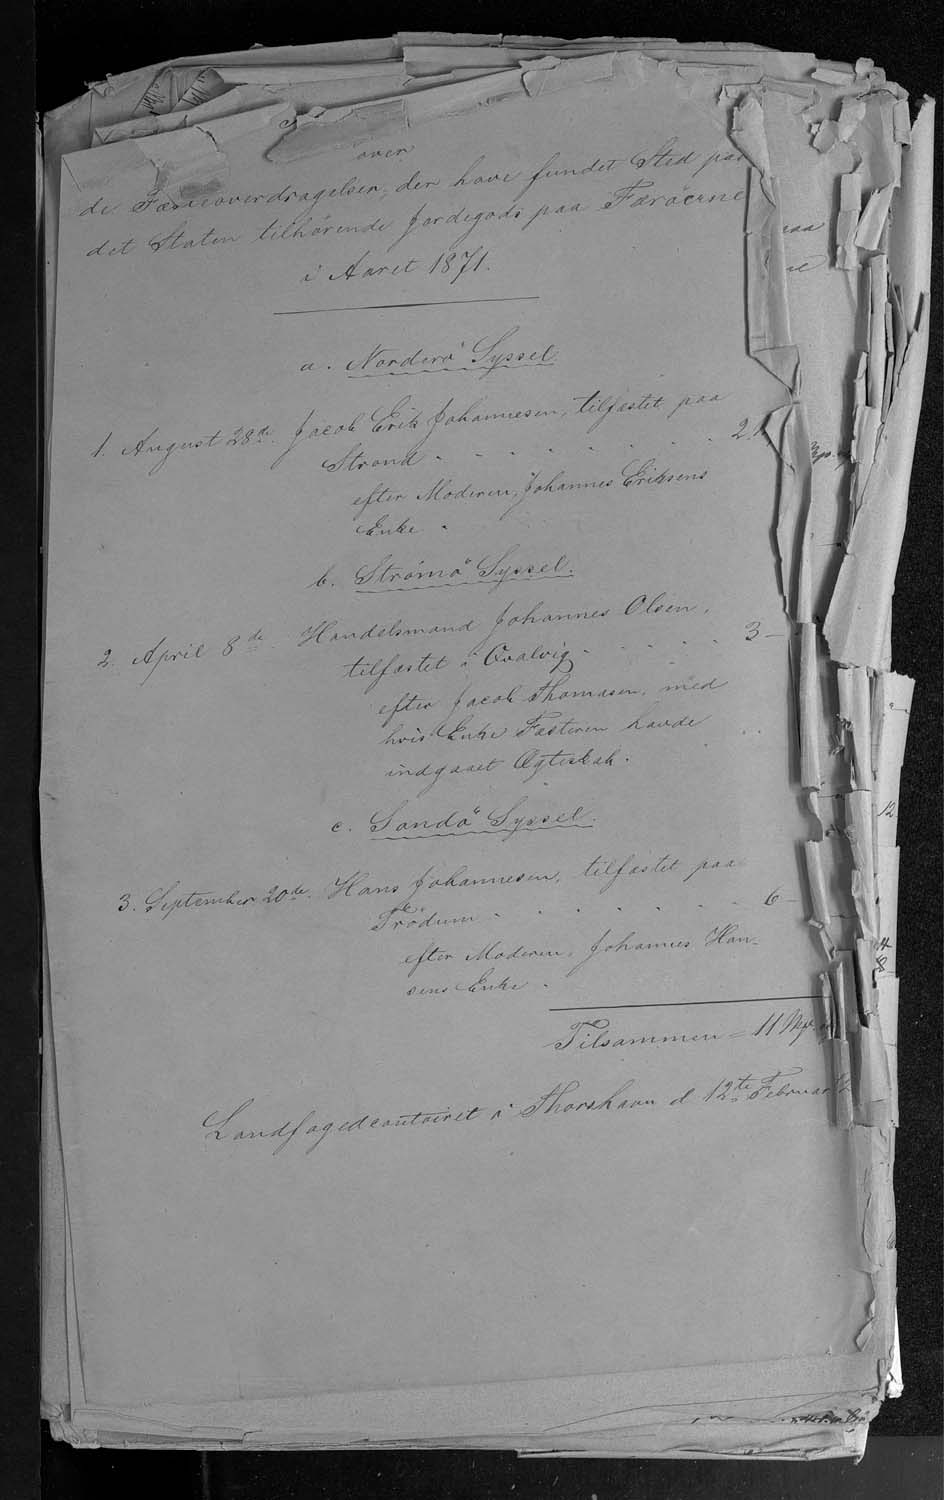 over
de Fæsteoverdragelser, der have fundet Sted paa
det Staten tilhørende Jordegods paa Færöerne
i Aaret 1871.
a. Norderö Syssel.
1. August 28de. Jacob Erik Johannesen, tilfæstet paa
Strond . . . . . . . . 2
efter Moderen, Johannes Eriksens
Enke.
b. Strömö Syssel.
2. April 8de. Handelsmand Johannes Olsen,
tilfæstet i Qvalvig . . . . . 3 –
efter Jacob Thomasen, med
hvis Enke Fæsteren havde
indgaaet Ægteskab.
c. Sandö Syssel.
3. September 20de. Hans Johannesen, tilfæstet paa
Trödum . . . . . . 6 –
efter Moderen, Johannes Han-
sens Enke.
Tilsammen = 11
Landfogedcontoiret i Thorshavn d 12te Februar